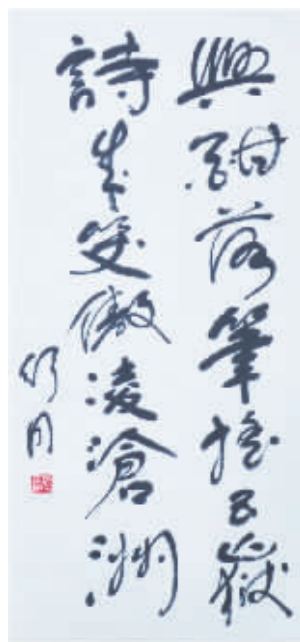 興酣落筆搖五嶽
詩成笑傲凌滄洲
舒同